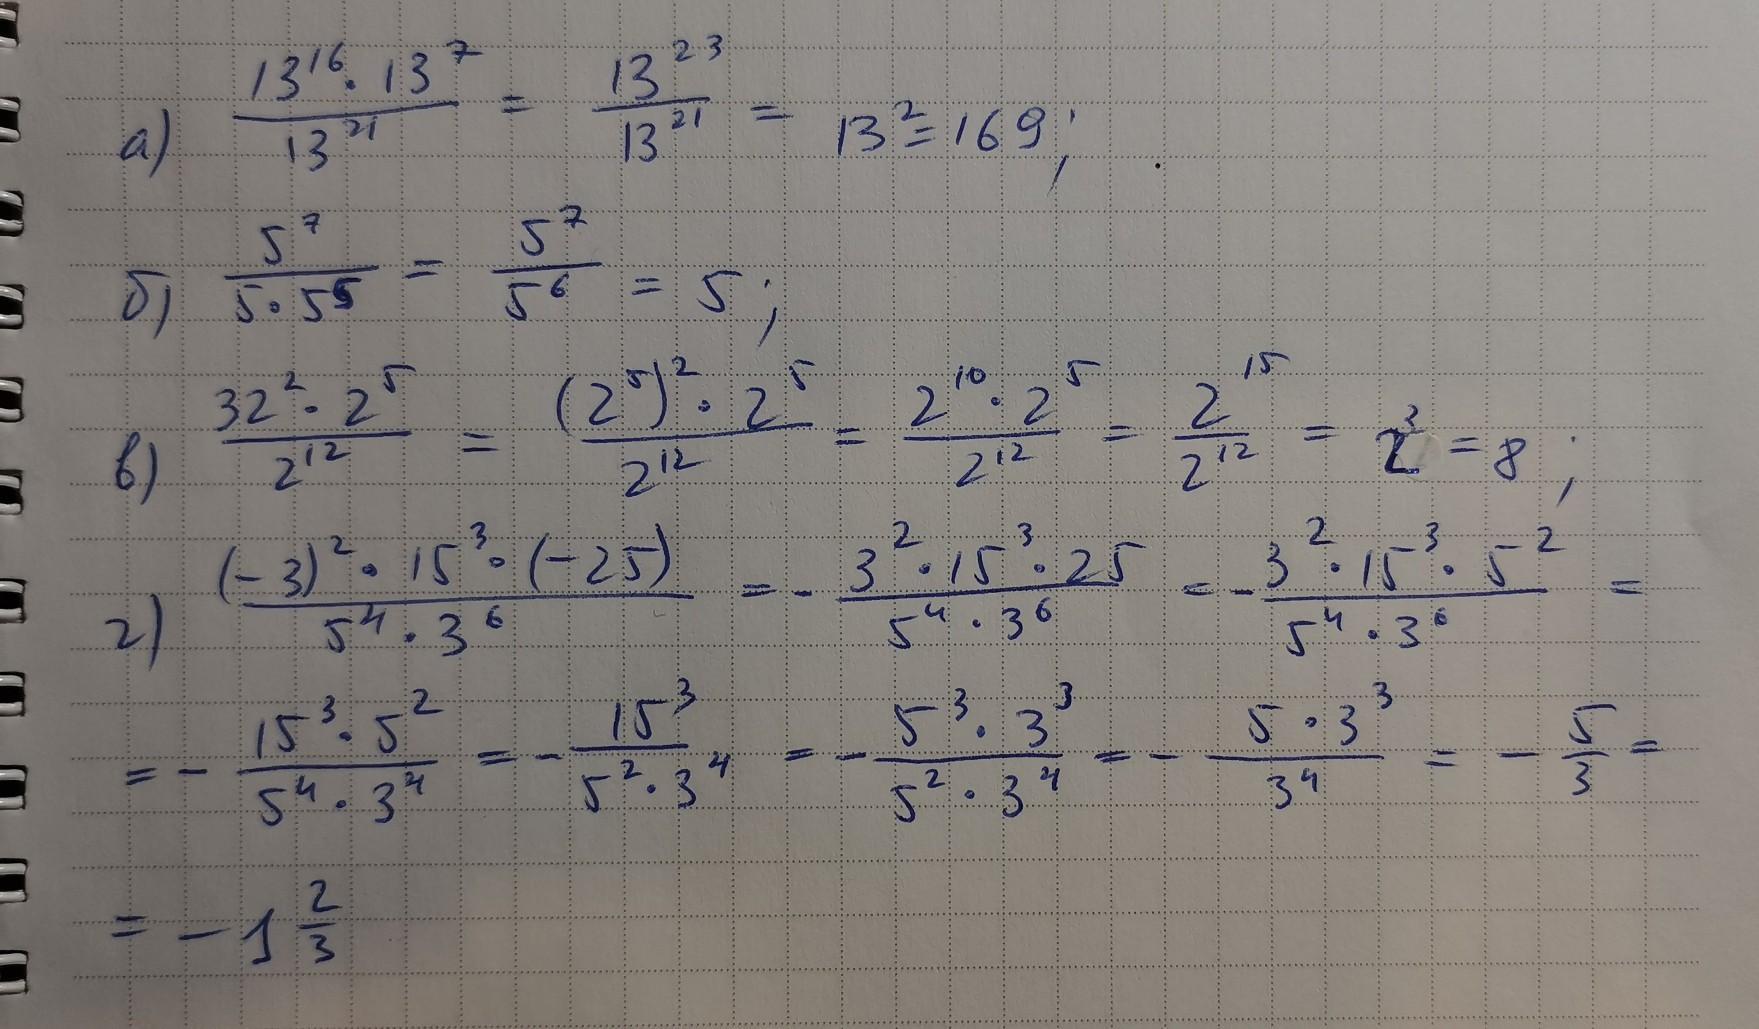 а) (13^16 · 13^7)/(13^21) = 13^23/13^21 = 13^2 = 169;
б) 5^7/(5 · 5^5) = 5^7/5^6 = 5;
в) (32^2 · 2^5)/2^12 = ((2^5)^2 · 2^5)/2^12 = (2^10 · 2^5)/2^12 = 2^15/2^12 = 2^3 = 8;
г) ((-3)^2 · 15^3 · (-25))/(5^4 · 3^6) = - (3^2 · 15^3 · 25)/(5^4 · 3^6) = - (3^2 · 15^3 · 5^2)/(5^4 · 3^6) =
= - (15^3 · 5^2)/(5^4 · 3^4) = - 15^3/(5^2 · 3^4) = - (5^3 · 3^3)/(5^2 · 3^4) = - (5 · 3^3)/3^4 = - 5/3 =
= - 1 2/3